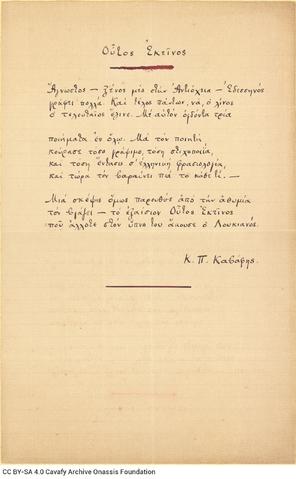 Οὗτος Ἐκεῖνος
Ἄγνωστος — ξένος μὲς στὴν Ἀντιόχεια — Ἐδεσσηνὸς
γράφει πολλά. Καὶ τέλος πάντων, νά, ὁ λίνος
ὁ τελευταῖος ἔγινε. Μὲ αὐτὸν ὀγδόντα τρία
ποιήματα ἐν ὅλῳ. Μὰ τὸν ποιητὴ
κούρασε τόσο γράψιμο, τόση στιχοποιΐα,
καὶ τόση ἔντασις σ' ἑλληνικὴ φρασιολογία,
καὶ τώρα τὸν βαραίνει πιὰ τὸ κάθε τί. —
Μιὰ σκέψις ὅμως παρευθὺς ἀπὸ τὴν ἀθυμία
τὸν βγάζει — τὸ ἐξαίσιον Οὗτος Ἐκεῖνος
ποὺ ἄλλοτε στὸν ὕπνο του ἄκουσε ὁ Λουκιανός.
Κ. Π. Καβάφης.
CC BY-SA 4.0 Cavafy Archive Onassis Foundation